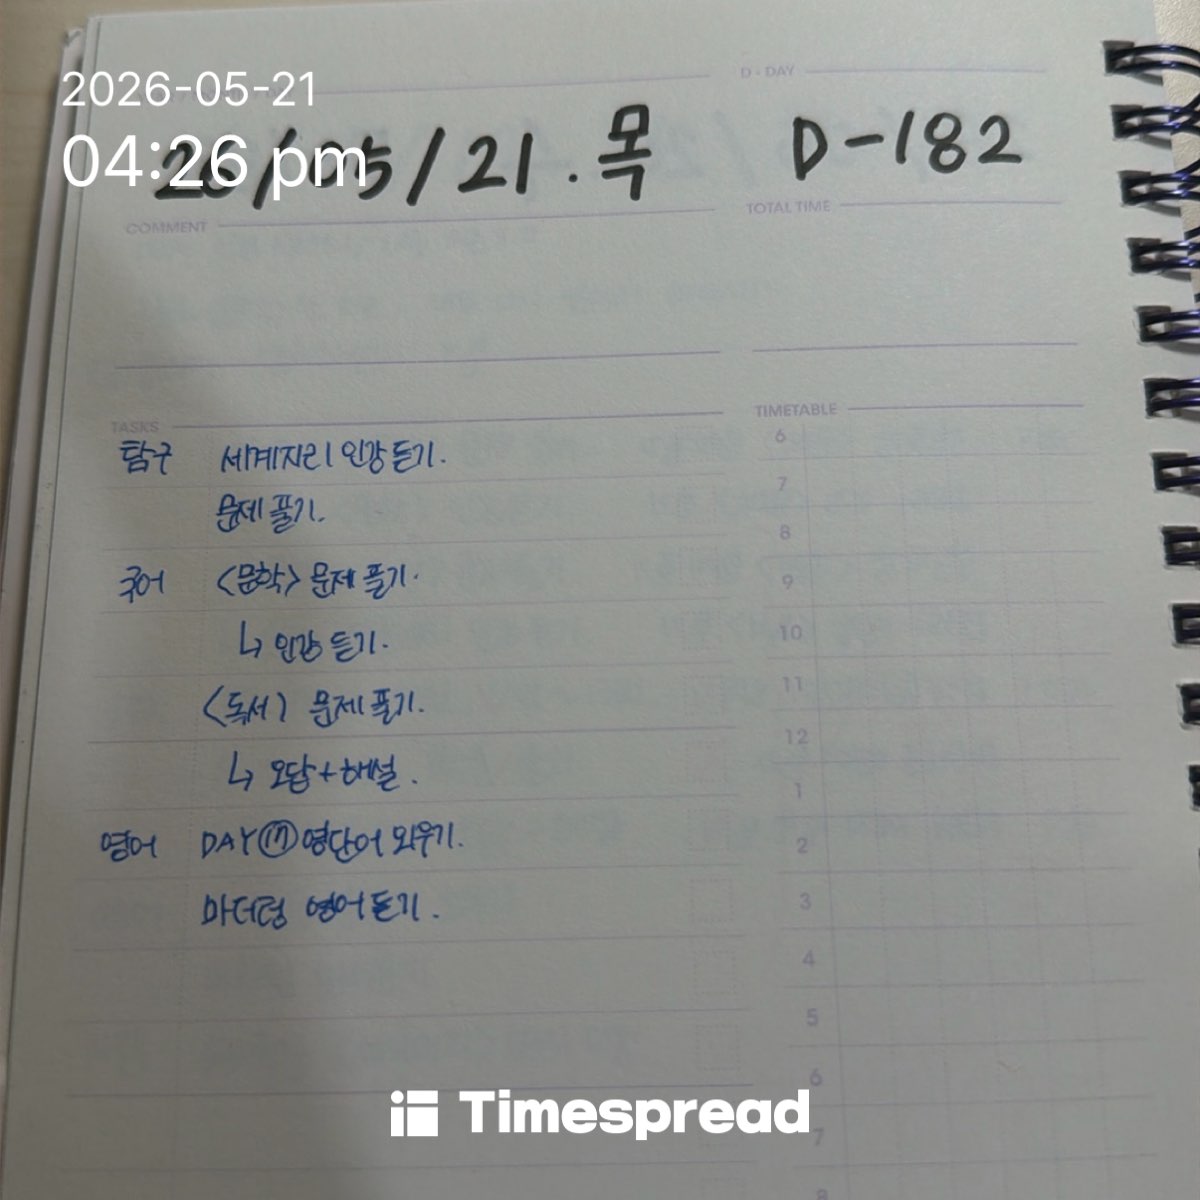 2026-05-21
04:26 pm
D-DAY
26/05/21.목 D-182
COMMENT
TOTAL TIME
TASKS
TIMETABLE
탐구 세계지리 인강 듣기.
문제 풀기.
국어 <문학> 문제 풀기.
↳ 인강 듣기.
<독서> 문제 풀기.
↳ 오답+해설.
영어 DAY⑰ 영단어 외우기.
마더텅 영어 듣기.
6
7
8
9
10
11
12
1
2
3
4
5
6
7
8
Timespread